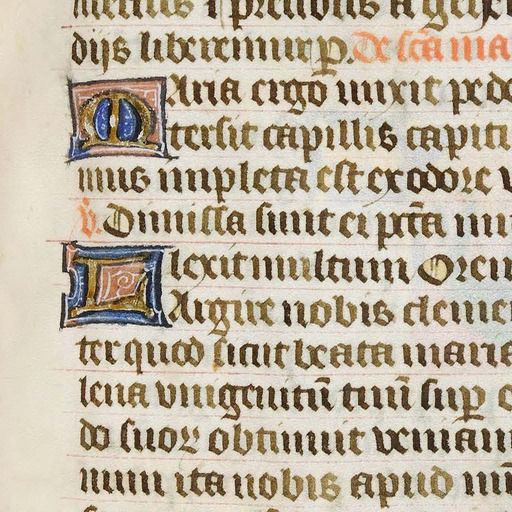 meritis et precibus a gehe
dijs liberemur p. De scā ma
Maria ergo unxit pede
tersit capillis capiti
mus impleta est ex odore v
V. Dimissa sunt ei pctā mu
lexit multum Orem
Largire nobis clemen
ter quod sicut beata maria
lena vnigenitū tuū suꝑ o
do suoꝝ obtinuit veniam
num ita nobis apud mi